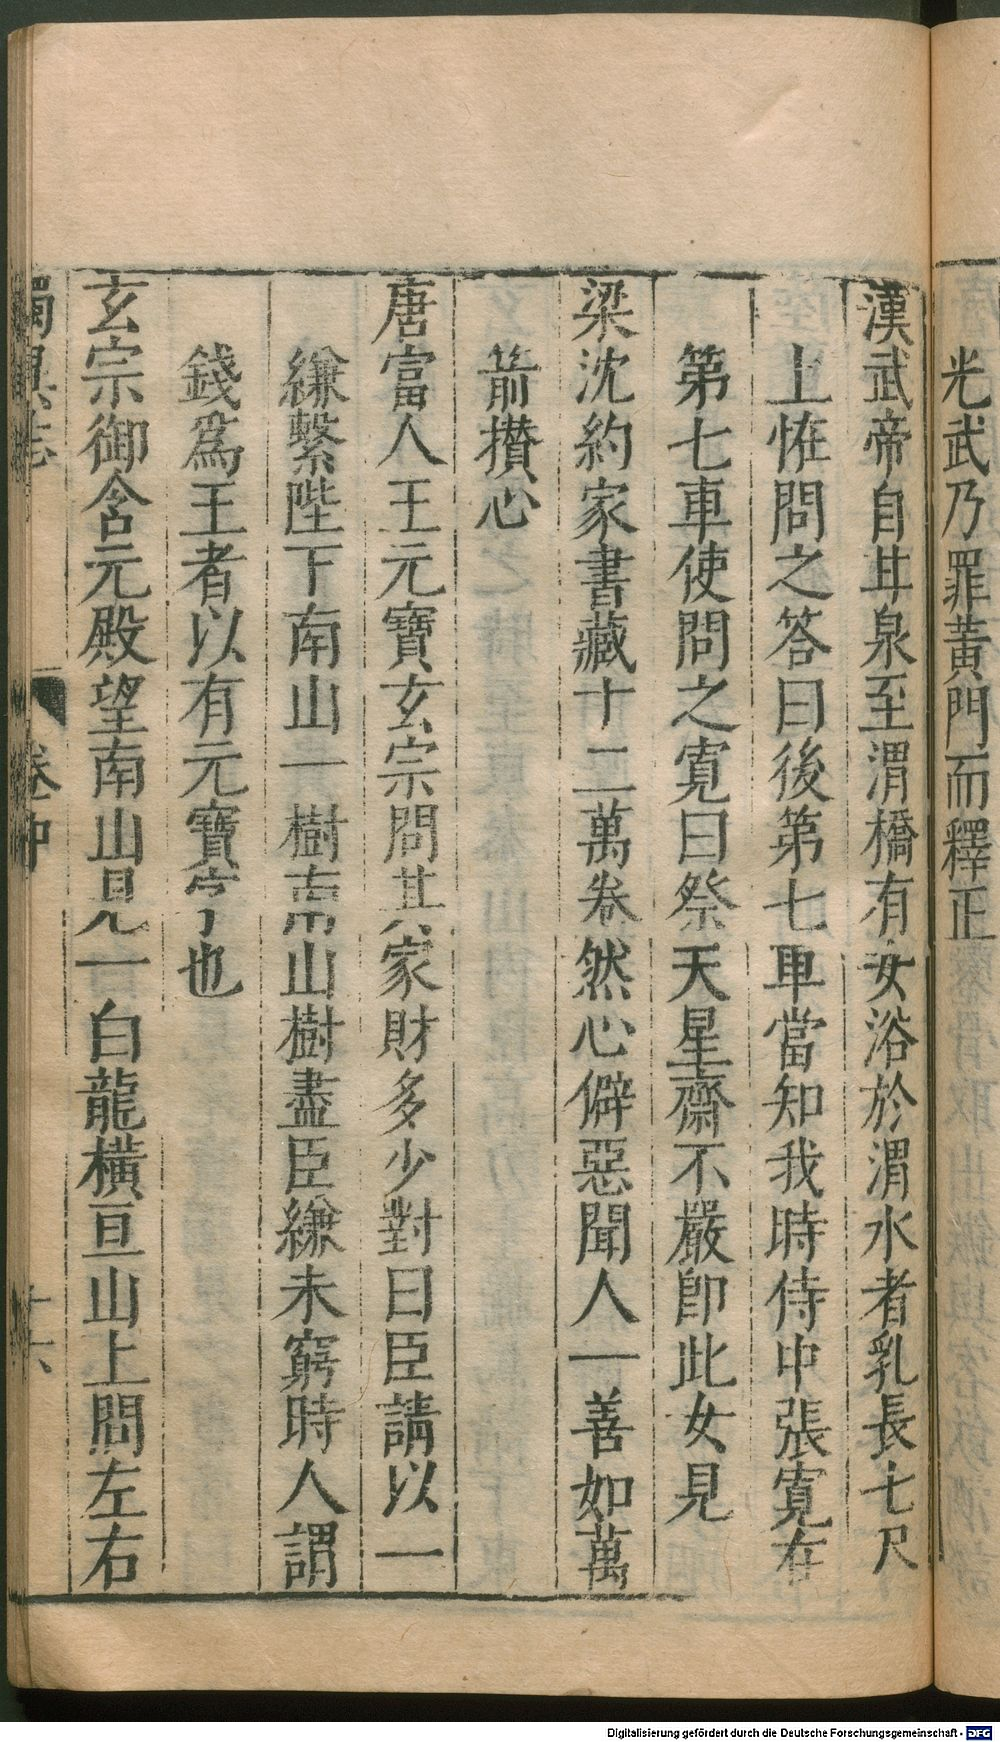 光武乃罪黃門而釋正
漢武帝自甘泉至渭橋有女浴於渭水者乳長七尺
上恠問之答曰後第七車當知我時侍中張寬在
第七車使問之寬曰祭天星齋不嚴卽此女見
梁沈約家書藏十二萬卷然心僻惡聞人一善如萬
箭攅心
唐富人王元寶玄宗問其家財多少對曰臣請以一
縑繫陛下南山一樹南山樹盡臣縑未窮時人謂
錢爲王者以有元寶字也
玄宗御含元殿望南山見一白龍橫亘山上問左右
獨異志
卷中
十六
Digitalisierung gefördert durch die Deutsche Forschungsgemeinschaft - DFG